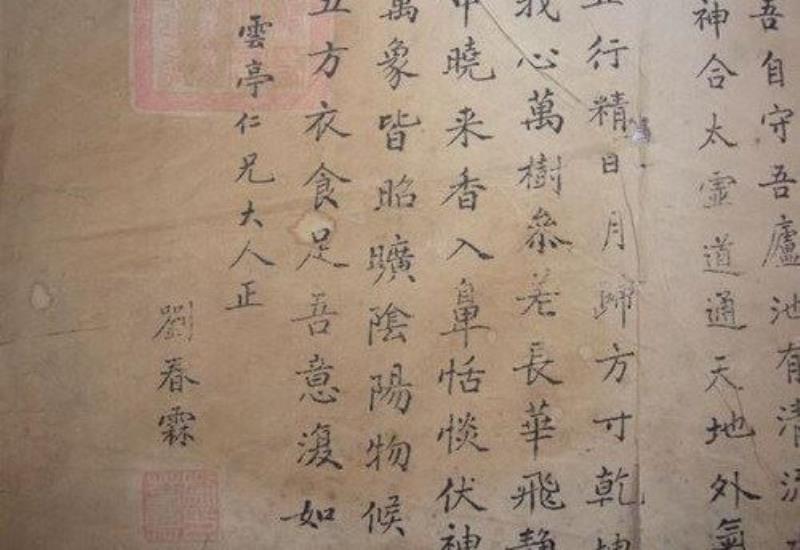 吾自守吾廬池有清流
神合太虛道通天地外氣
五行精日月歸方寸乾坤
我心萬樹參差長華飛靜
中曉来香入鼻恬惔伏神
萬象皆昭曠陰陽物候
五方衣食足吾意復如
雲亭仁兄大人正
劉春霖